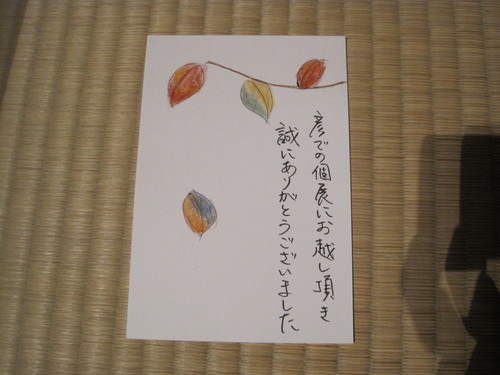 彦での個展にお越し頂き
誠にありがとうございました